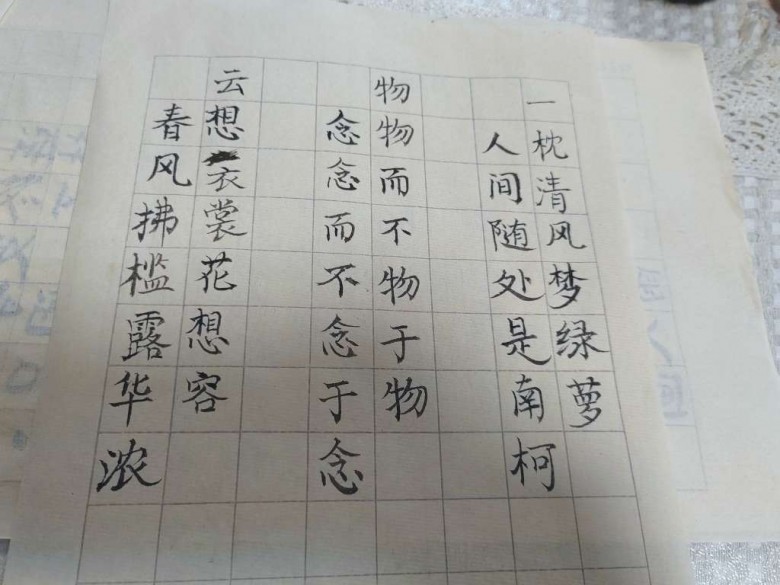 一枕清风梦绿萝
人间随处是南柯
物物而不物于物
念念而不念于念
云想衣裳花想容
春风拂槛露华浓